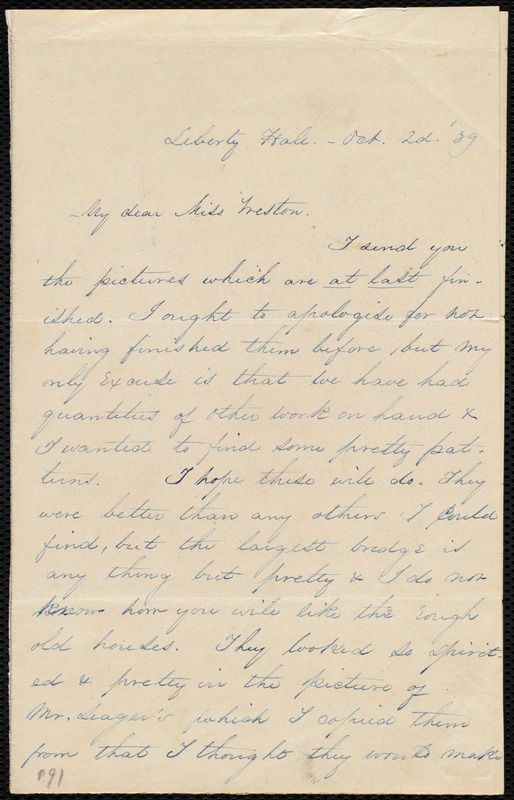 Liberty Hall. - Oct. 2d. '39
My dear Miss Weston.
I send you
the pictures which are at last fin-
ished. I ought to apologise for not
having finished them before, but my
only excuse is that we have had
quantities of other work on hand &
I wanted to find some pretty pat-
terns. I hope these will do. They
were better than any others I could
find, but the largest bridge is
any thing but pretty & I do not
know how you will like the rough
old houses. They looked so spirit-
ed & pretty in the picture of
Mr. Seager's which I copied them
from that I thought they would make